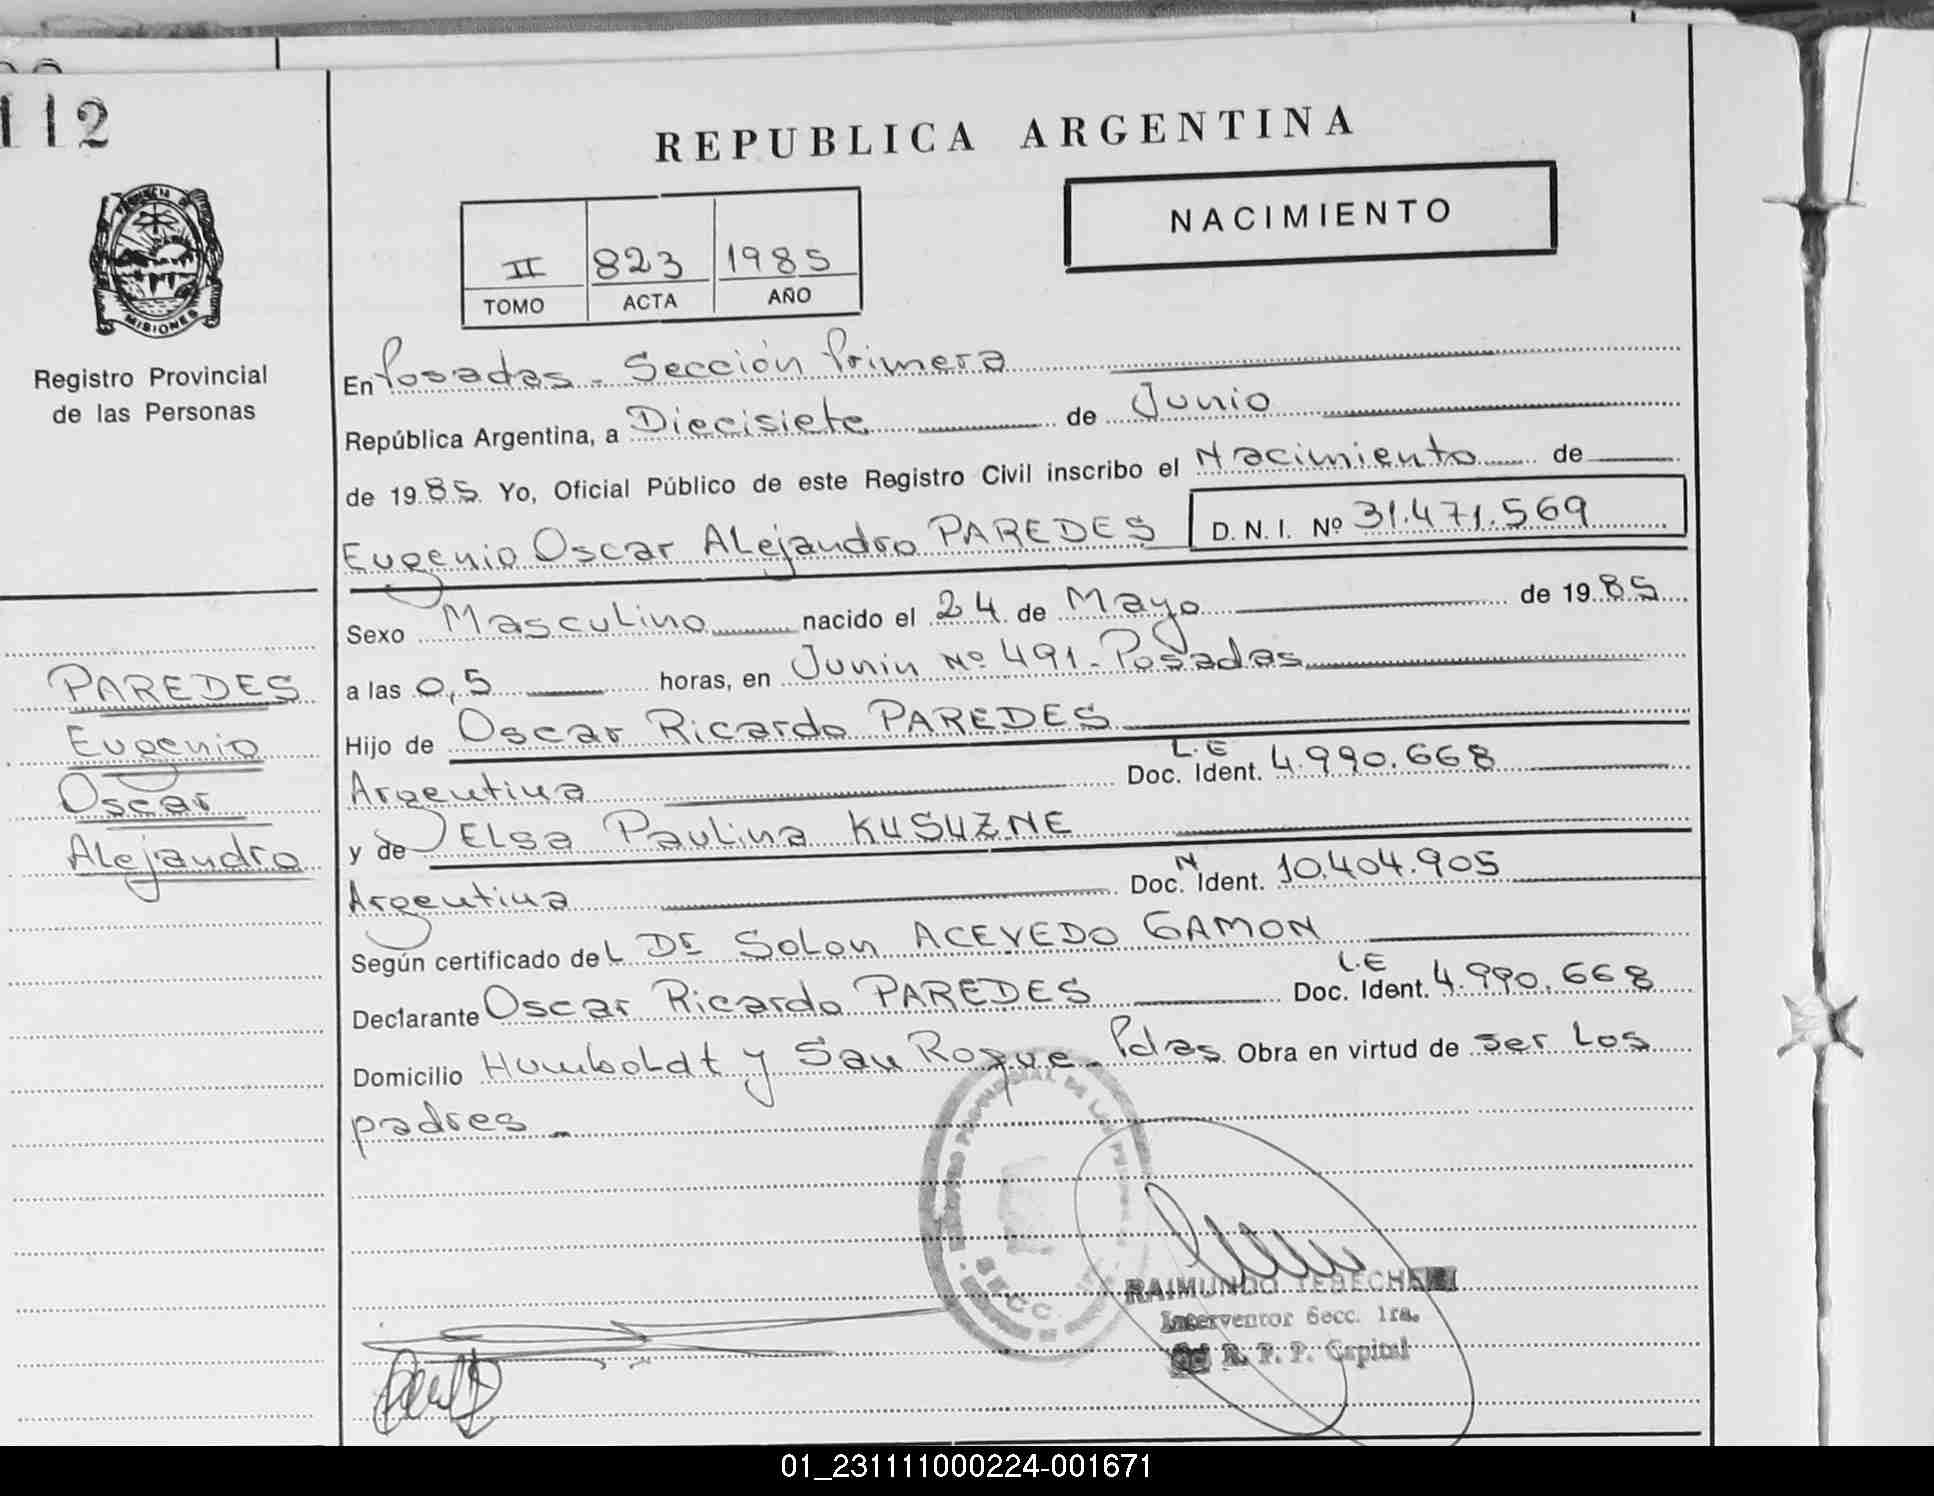 112
REPUBLICA ARGENTINA
NACIMIENTO
II 823 1985
TOMO ACTA AÑO
MISIONES
Registro Provincial
de las Personas
En Posadas - Sección Primera
República Argentina, a Diecisiete de Junio
de 1985 Yo, Oficial Público de este Registro Civil inscribo el Nacimiento de
Eugenio Oscar Alejandro PAREDES D. N. I. Nº 31.471.569
Sexo Masculino nacido el 24 de Mayo de 1985
a las 0,5 horas, en Junin Nº 491 - Posadas
Hijo de Oscar Ricardo PAREDES
Argentina Doc. Ident. L.E 4.990.668
y de Elsa Paulina KUSUZNE
Argentina Doc. N Ident. 10.404.905
Según certificado del Dr Solon ACEVEDO GAMON
Declarante Oscar Ricardo PAREDES Doc. Ident. L.E 4.990.668
Domicilio Humboldt y San Roque - Pdas Obra en virtud de ser los
padres -
PAREDES
Eugenio
Oscar
Alejandro
RAIMUNDO
Interventor Secc. 1ra.
R. P. P. Capital
01_231111000224-001671